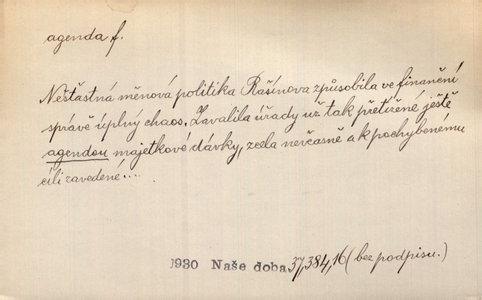 agenda f.
Nešťastná měnová politika Rašínova způsobila ve finanční
správě úplný chaos. Zavalila úřady už tak přetížené ještě
agendou majetkové dávky, zcela nevčasně a k pochybenému
cíli zavedené...
1930 Naše doba 37,384,16 (bez podpisu.)